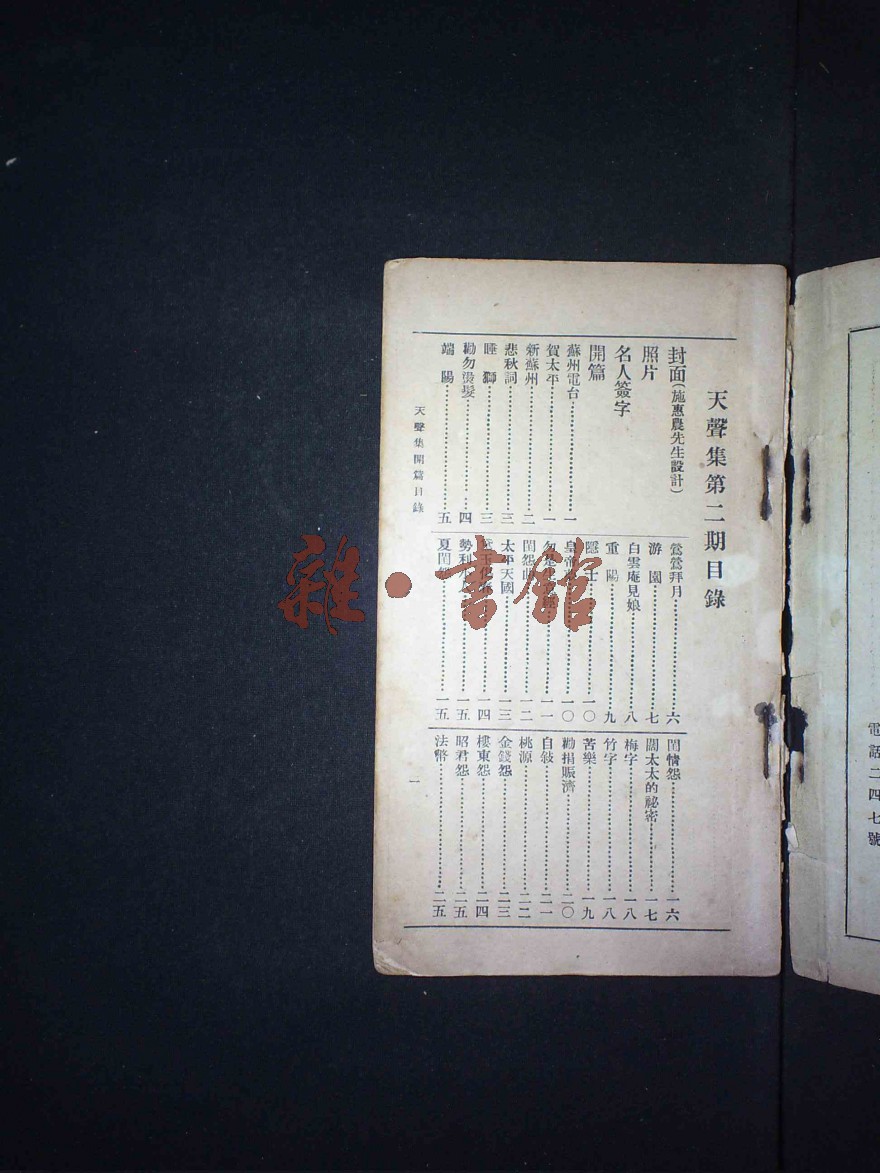 天聲集第二期目錄
封面(施惠農先生設計)
照片
名人簽字
開篇
蘇州電台……一
賀太平……一
新蘇州……二
悲秋詞……三
睡獅……三
勸勿燙髮……四
端陽……五
鶯鶯拜月……六
游園……七
白雲庵見娘……八
重陽……九
隱士……一〇
皇帝……一〇
……一一
閨怨……一二
太平天國……一三
……一四
勢利……一五
夏閨……一五
閨情怨……一六
闊太太的祕密……一七
梅字……一八
竹字……一八
苦樂……一九
勸捐賑濟……二〇
自敍……二一
桃源……二二
金錢怨……二三
樓東怨……二四
昭君怨……二五
法幣……二五
天聲集開篇目錄
一
電話二四七號
雜·書館